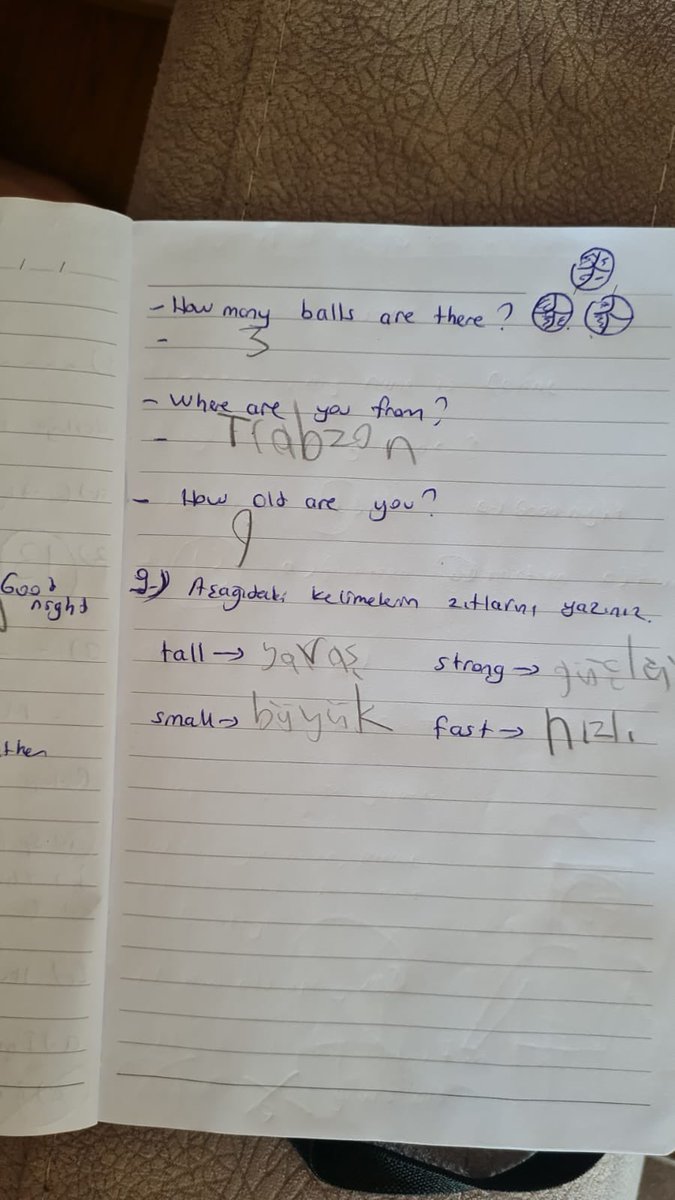 - How many balls are there?
- 3
- Where are you from?
- Trabzon
- How old are you?
9
Good
night
9-) Aşağıdaki kelimelerin zıtlarını yazınız.
tall → yavaş strong → güçlü
small → büyük fast → hızlı
then